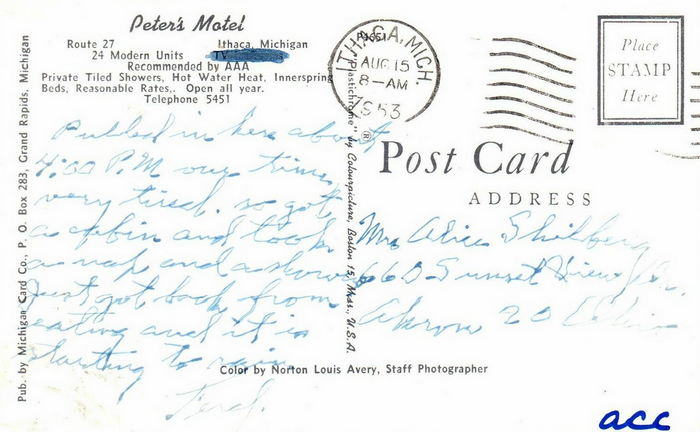 Peter's Motel
Route 27 Ithaca, Michigan
24 Modern Units TV
Recommended by AAA
Private Tiled Showers, Hot Water Heat, Innerspring
Beds, Reasonable Rates,. Open all year.
Telephone 5451
Pulled in here about
4:00 P.M our time
very tired. so got
a cabin and took
a nap and a shower
Just got back from
eating and it is
starting to rain.
Pub. by Michigan Card Co., P. O. Box 283, Grand Rapids, Mich.
"Plastichrome" ® by Colourpicture, Boston 15, Mass., U.S.A.
ITHACA, MICH.
AUG 15
8-AM
1953
Place
STAMP
Here
Post Card
ADDRESS
Mrs Alice
660 Sunset View Dr.
Akron 20
Color by Norton Louis Avery, Staff Photographer
acc